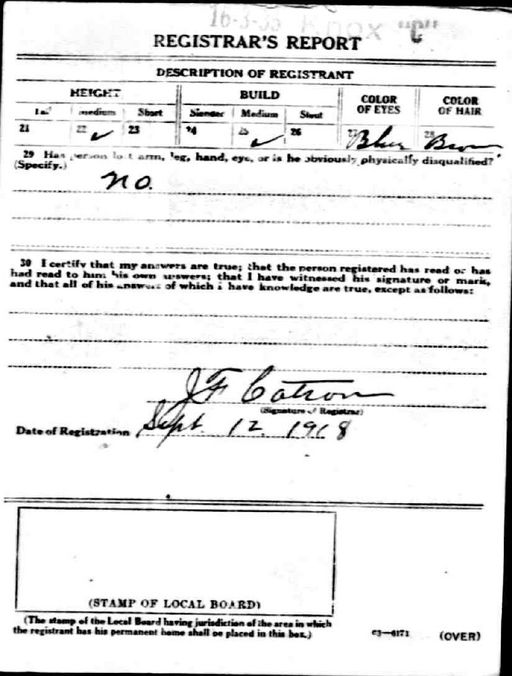 16-3-33 Knox "C"
REGISTRAR'S REPORT
DESCRIPTION OF REGISTRANT
HEIGHT BUILD COLOR OF EYES COLOR OF HAIR
Tall medium Short Slender Medium Stout
21 22 ✓ 23 24 25 ✓ 26 27 Blue 28 Brown
29 Has person lost arm, leg, hand, eye, or is he obviously physically disqualified?
(Specify.) no.
30 I certify that my answers are true; that the person registered has read or has
had read to him his own answers; that I have witnessed his signature or mark,
and that all of his answers of which I have knowledge are true, except as follows:
J F Catron
(Signature of Registrar)
Date of Registration Sept. 12, 1918
(STAMP OF LOCAL BOARD)
(The stamp of the Local Board having jurisdiction of the area in which
the registrant has his permanent home shall be placed in this box.)
03—6171 (OVER)